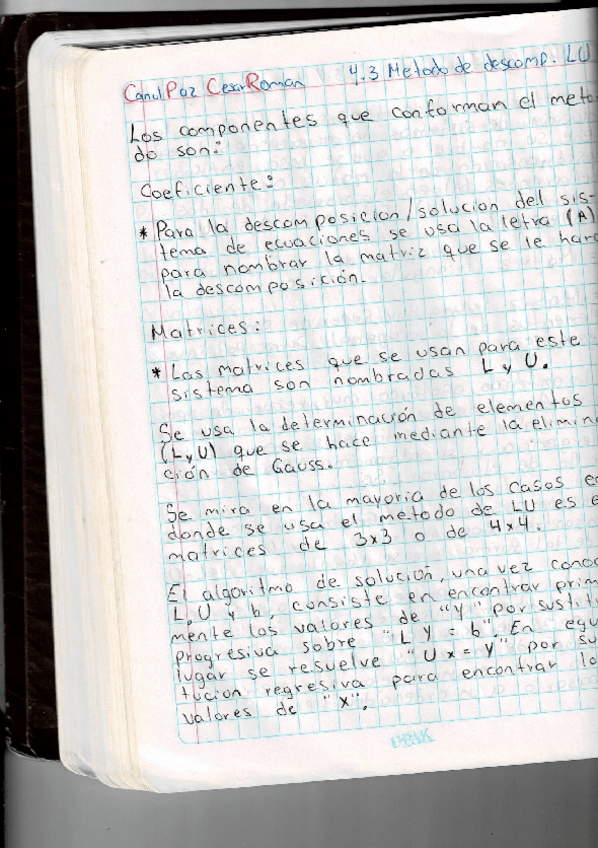 Canul Paz Cesar Roman 4.3 Metodo de descomp. LU
Los componentes que conforman el meto
do son:
Coeficiente:
* Para la descomposicion/solucion del sis-
tema de ecuaciones se usa la letra (A)
para nombrar la matriz que se le hara
la descomposición.
Matrices:
* Las matrices que se usan para este
sistema son nombradas L y U.
Se usa la determinación de elementos
(L y U) que se hace mediante la elimina
ción de Gauss.
Se mira en la mayoria de los casos en
donde se usa el metodo de LU es e
matrices de 3x3 o de 4x4.
El algoritmo de solución, una vez conoc
L, U y b, consiste en encontrar prim
mente los valores de "Y" por sustit
progresiva sobre "L Y = b". En egu
lugar se resuelve "U x = Y" por su
tucion regresiva para encontrar lo
valores de "X".